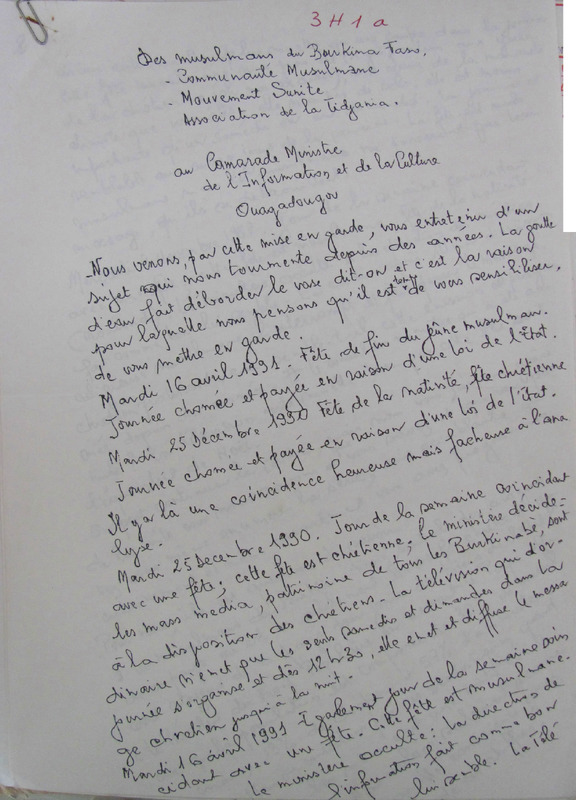 3H1a
Des musulmans du Burkina Faso.
- Communauté Musulmane
- Mouvement Sunite
Association de la Tidjania.
au Camarade Ministre
de l'Information et de la Culture
Ouagadougou
Nous venons, par cette mise en garde, vous entretenir d'un
sujet qui nous tourmente depuis des années. La goutte
d'eau fait déborder le vase dit-on et c'est la raison
pour laquelle nous pensons qu'il est temps de vous sensibiliser,
de vous mèthre en garde.
Mardi 16 avril 1991. Fête de fin du jeûne musulman.
Journée chomée et payée en raison d'une loi de l'Etat.
Mardi 25 Décembre 1990 Fête de la nativité, fête chrétienne
Journée chomée et payée en raison d'une loi de l'Etat.
Il y a là une coïncidence heureuse mais facheuse à l'ana
lyse.
Mardi 25 Decembre 1990. Jour de la semaine coincidant
avec une fête; cette fête est chrétienne; le ministère décide-
les mass media, patrimoine de tous les Burkinabè, sont
à la disposition des chrétiens. La télévision qui d'or-
dinaire n'émet que les seuls samedis et dimanches dans la
journée s'organise et dès 12h30, elle emet et diffuse le messa
ge chretien jusqu'à la nuit.
Mardi 16 avril 1991 Egalement jour de la semaine coin
cidant avec une fête. Cette fête est musulmane.
Le ministère occulte: La direction de
l'information fait comme bon
lui semble. La Télé